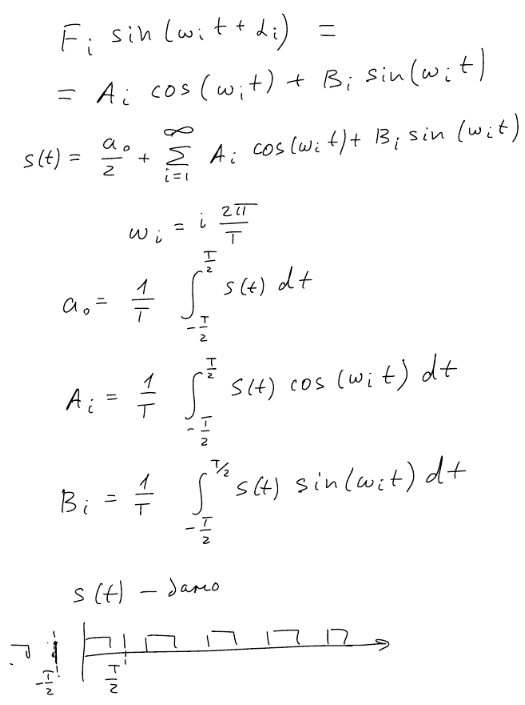 F_i sin(w_i t + α_i) =
= A_i cos(w_i t) + B_i sin(w_i t)
s(t) = a_0/2 + ∑_{i=1}^{∞} A_i cos(w_i t) + B_i sin(w_i t)
w_i = i 2π/T
a_0 = 1/T ∫_{-T/2}^{T/2} s(t) dt
A_i = 1/T ∫_{-T/2}^{T/2} S(t) cos(w_i t) dt
B_i = 1/T ∫_{-T/2}^{T/2} s(t) sin(w_i t) dt
s(t) – дано
-T/2 T/2